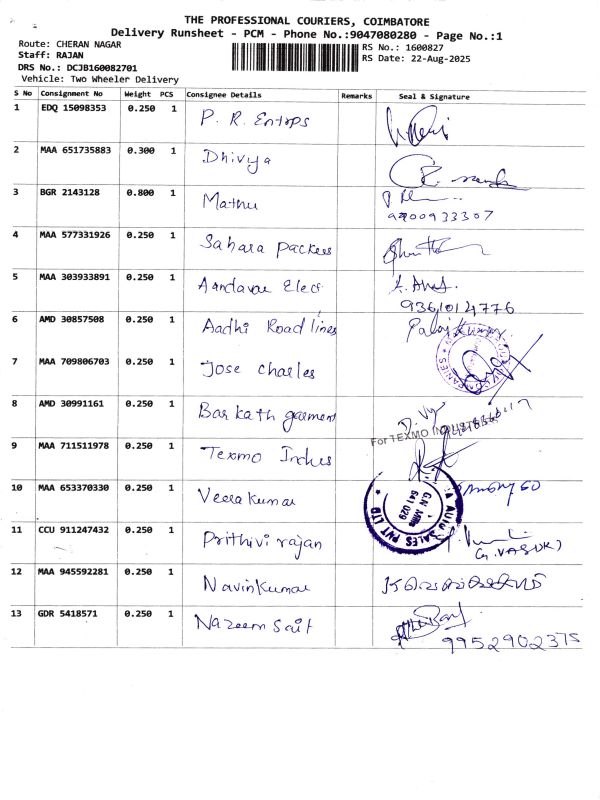 THE PROFESSIONAL COURIERS, COIMBATORE
Delivery Runsheet - PCM - Phone No.:9047080280 - Page No.:1
Route: CHERAN NAGAR
RS No.: 1600827
Staff: RAJAN
RS Date: 22-Aug-2025
DRS No.: DCJB160082701
Vehicle: Two Wheeler Delivery
S No Consignment No Weight PCS Consignee Details Remarks Seal & Signature
1 EDQ 15098353 0.250 1 P. R. Entrps
2 MAA 651735883 0.300 1 Dhivya
3 BGR 2143128 0.800 1 Mathu
9700933307
4 MAA 577331926 0.250 1 Sahara Packers
5 MAA 303933891 0.250 1 Aandavar Elecs
9361014776
6 AMD 30857508 0.250 1 Aadhi Road lines
7 MAA 709806703 0.250 1 Jose charles
8 AMD 30991161 0.250 1 Barkath garment
For TEXMO INDUSTRIES
9 MAA 711511978 0.250 1 Texmo Indus
10 MAA 653370330 0.250 1 Veerakumar
AUTO SALES PVT LTD
G.N Mills
641 029
11 CCU 911247432 0.250 1 Prithivi rajan
(G. VASUKI)
12 MAA 945592281 0.250 1 Navinkumar
13 GDR 5418571 0.250 1 Nazeem Sait
9952902375